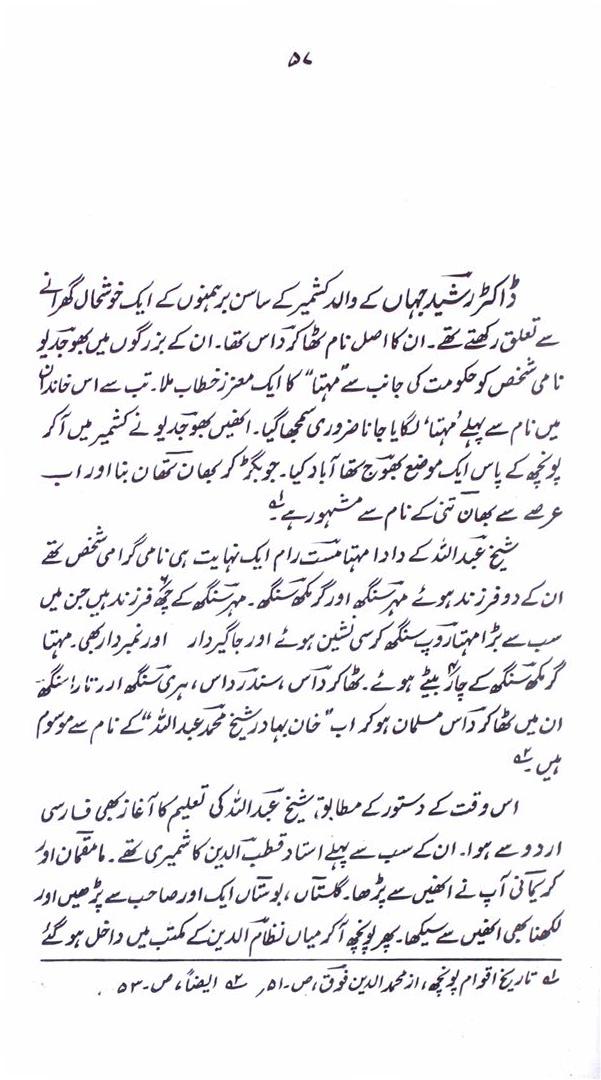 ۵۷
ڈاکٹر رشید جہاں کے والد کشمیر کے ساسن برہمنوں کے ایک خوشحال گھرانے
سے تعلق رکھتے تھے۔ ان کا اصل نام ٹھاکر داس تھا۔ ان کے بزرگوں میں بھوجدیو
نامی شخص کو حکومت کی جانب سے "مہتا" کا ایک معزز خطاب ملا۔ تب سے اس خاندان
میں نام سے پہلے 'مہتا' لگایا جانا ضروری سمجھا گیا۔ انھیں بھوجدیو نے کشمیر میں آکر
پونچھ کے پاس ایک موضع بھوج تھا آباد کیا۔ جو بگڑ کر بھان تھان بنا اور اب
عرصے سے بھان تنی کے نام سے مشہور ہے۔ ۱؎
شیخ عبداللہ کے دادا مہتا مست رام ایک نہایت ہی نامی گرامی شخص تھے
ان کے دو فرزند ہوئے مہر سنگھ اور گرمکھ سنگھ۔ مہر سنگھ کے چھ۶ فرزند ہیں جن میں
سب سے بڑا مہتا روپ سنگھ کرسی نشین ہوئے اور جاگیردار اور نمبردار بھی۔ مہتا
گرمکھ سنگھ کے چار۴ بیٹے ہوئے۔ ٹھاکر داس، سندر داس، ہری سنگھ اور تارا سنگھ
ان میں ٹھاکر داس مسلمان ہوکر اب "خان بہادر شیخ محمد عبداللہ" کے نام سے موسوم
ہیں۔ ۲؎
اس وقت کے دستور کے مطابق شیخ عبداللہ کی تعلیم کا آغاز بھی فارسی
اردو سے ہوا۔ ان کے سب سے پہلے استاد قطب الدین کاشمیری تھے۔ مامقیماں اور
کریما بھی آپ نے انھیں سے پڑھا۔ گلستاں، بوستاں ایک اور صاحب سے پڑھیں اور
لکھنا بھی انھیں سے سیکھا۔ پھر پونچھ آکر میاں نظام الدین کے مکتب میں داخل ہو گئے
۱؎ تاریخ اقوام پونچھ، از محمد الدین فوق، ص۔۵۱، ۲؎ ایضاً، ص۔۵۳